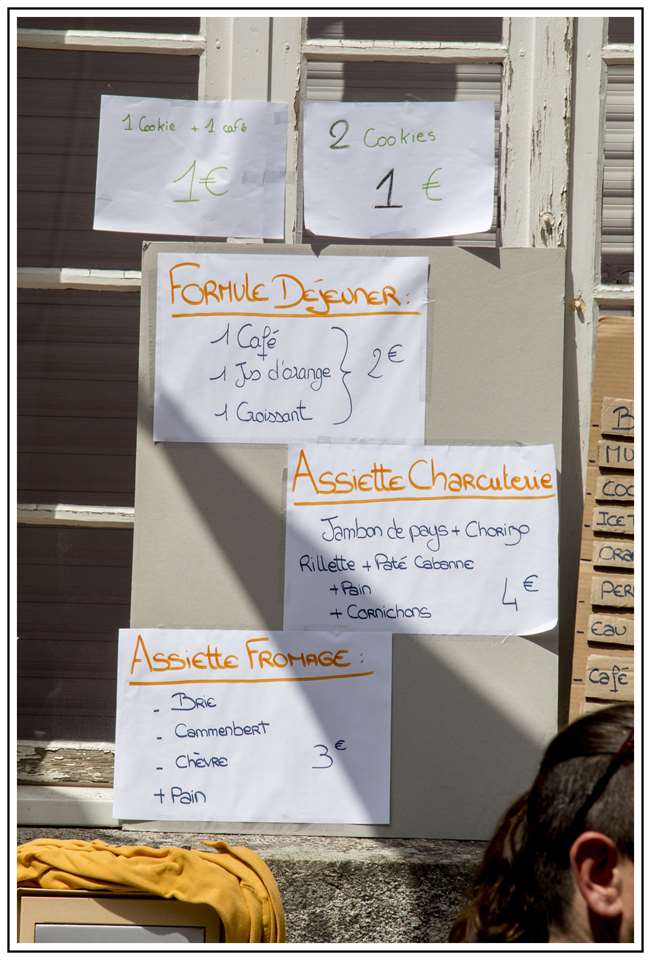 1 Cookie + 1 café
1€
2 Cookies
1 €
FORMULE DEJEUNER :
1 Café
+
1 Jus d'orange
1 Croissant
2€
ASSIETTE CHARCUTERIE
Jambon de pays + CHORIZO
Rillette + Paté Cabanne
+ Pain
+ CORNICHONS
4€
ASSIETTE FROMAGE :
- BRIE
- CAMMENBERT
- CHÈVRE
+ Pain
3€
- EAU
- Café